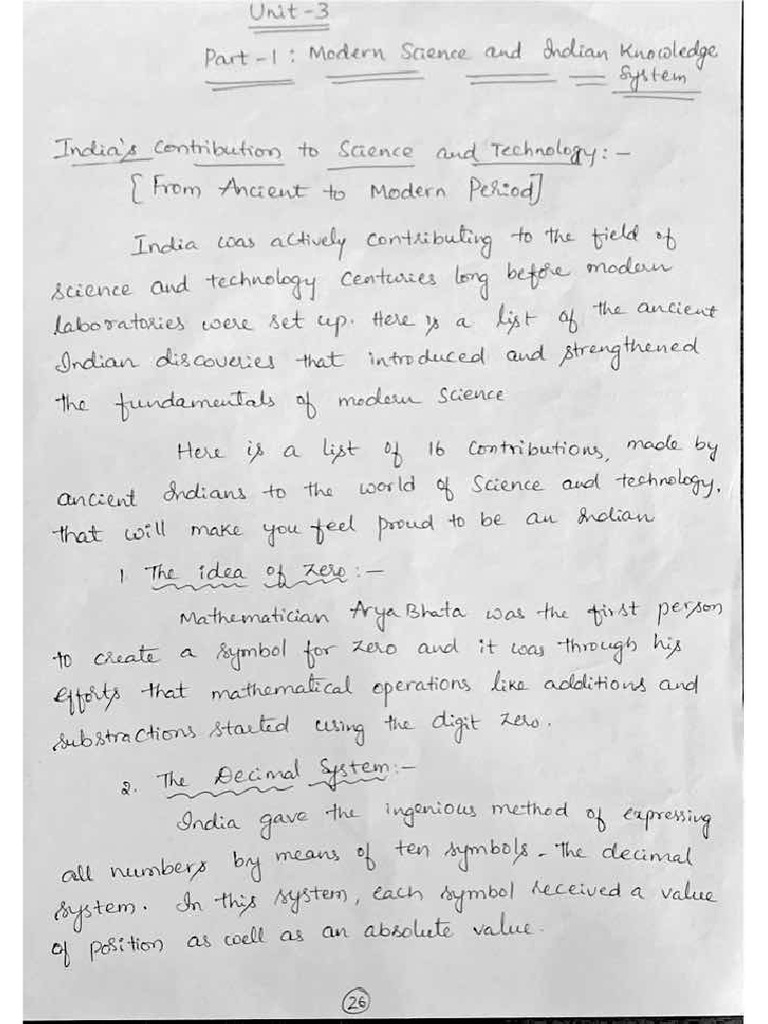 Unit-3
Part-1: Modern Science and Indian Knowledge
System
India's Contribution to Science and Technology:-
[From Ancient to Modern Period]
India was actively contributing to the field of
science and technology centuries long before modern
laboratories were set up. Here is a list of the ancient
Indian discoveries that introduced and strengthened
the fundamentals of modern science
Here is a list of 16 contributions, made by
ancient Indians to the world of Science and technology,
that will make you feel proud to be an Indian
1. The idea of zero:-
Mathematician AryaBhata was the first person
to create a symbol for zero and it was through his
efforts that mathematical operations like additions and
substractions started using the digit zero.
2. The Decimal System:-
India gave the ingenious method of expressing
all numbers by means of ten symbols - the decimal
system. In this system, each symbol received a value
of position as well as an absolute value.
26